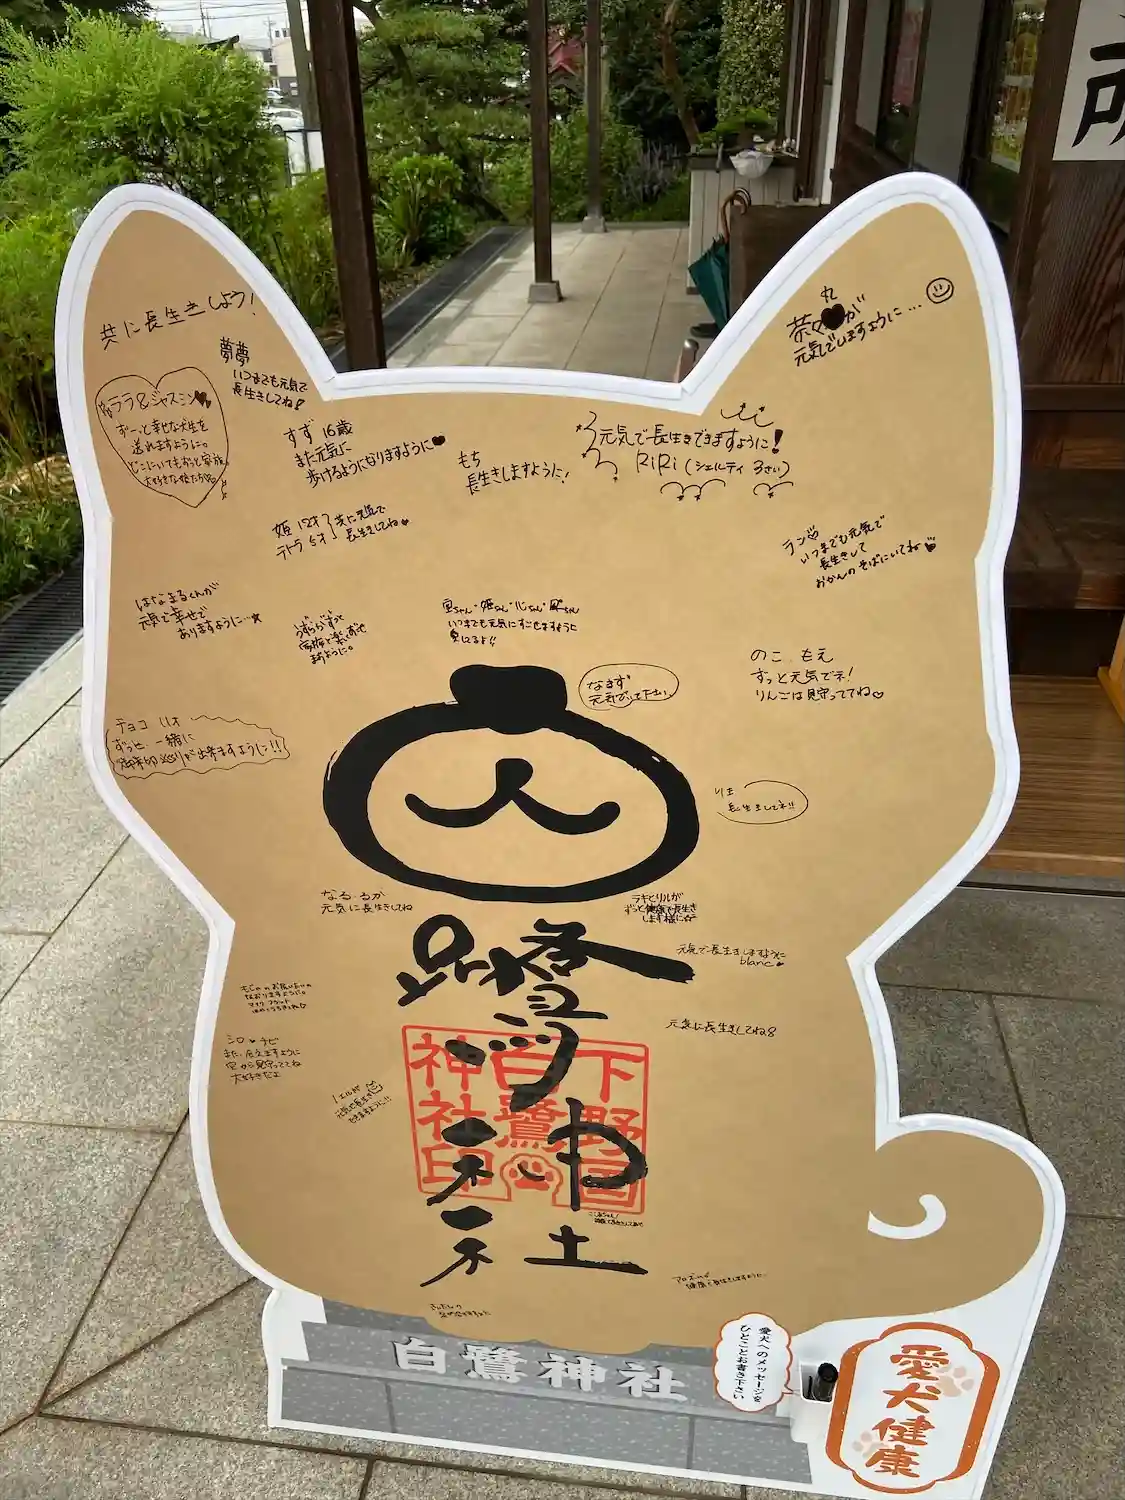 共に長生きしよう!
夢夢
いつまでも元気で
長生きしてね
ララ&ジャスミン
ずーっと幸せな犬生を
送れますように。
どこにいてもずっと家族。
すず 16歳
また元気に
歩けるようになりますように
もち
長生きしますように!
元気で長生きできますように!
RiRi(シェルティ 3さい)
が
元気でいますように…
所
姫 12才
テトラ 5才
共に元気で
長生きしてね
ラン
いつまでも元気で
長生きして
おかんのそばにいてね
はなまるくんが
元気で幸せで
ありますように…☆
いつまでも元気にすごせますように
なまず
元気でいて下さい
のこ もえ
ずっと元気でネ!
りんごは見守っててね
チョコ 11才
ずっと一緒に
御朱印巡りが出来ますように!!
りま
長生きしてネ!!
なる るか
元気に長生きしてね
ラキとリルが
ずっと健康で長生き
します様に☆
元気で長生きしますように
blanc
元気に長生きしてね
シロ
また、会えますように
空から見守っててね
大好きだよ
元気で長生き
できますように!!
白鷺神社
下野国
白鷺
神社印
健康で長生きしますように
白鷺神社
愛犬へのメッセージを
ひとことお書き下さい
愛犬健康